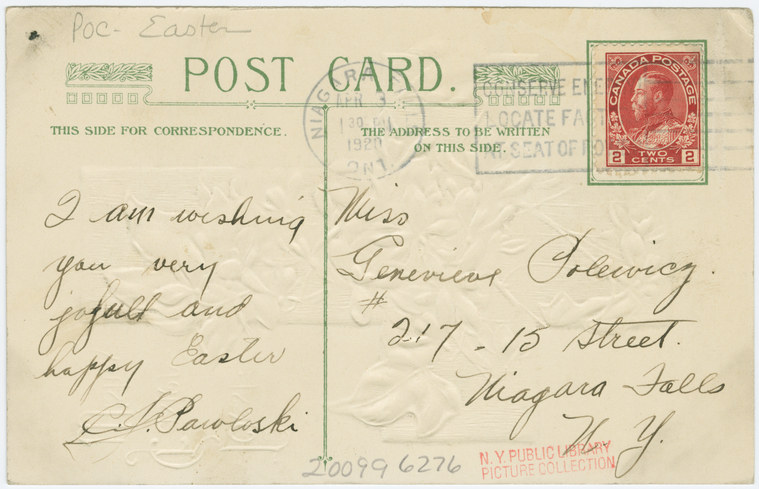 Poc- Easter
POST CARD.
THIS SIDE FOR CORRESPONDENCE.
THE ADDRESS TO BE WRITTEN
ON THIS SIDE.
NIAGARA FALLS
APR 3
1 30 PM
1920
ONT.
CONSERVE ENE
LOCATE FACT
AT SEAT OF PO
CANADA POSTAGE
2 TWO CENTS 2
I am wishing
you very
jofull and
happy Easter
C.J. Pawloski
Miss
Genevieve Polewicz.
#
217 - 15 Street.
Niagara Falls
N. Y.
200996276
N.Y. PUBLIC LIBRARY
PICTURE COLLECTION